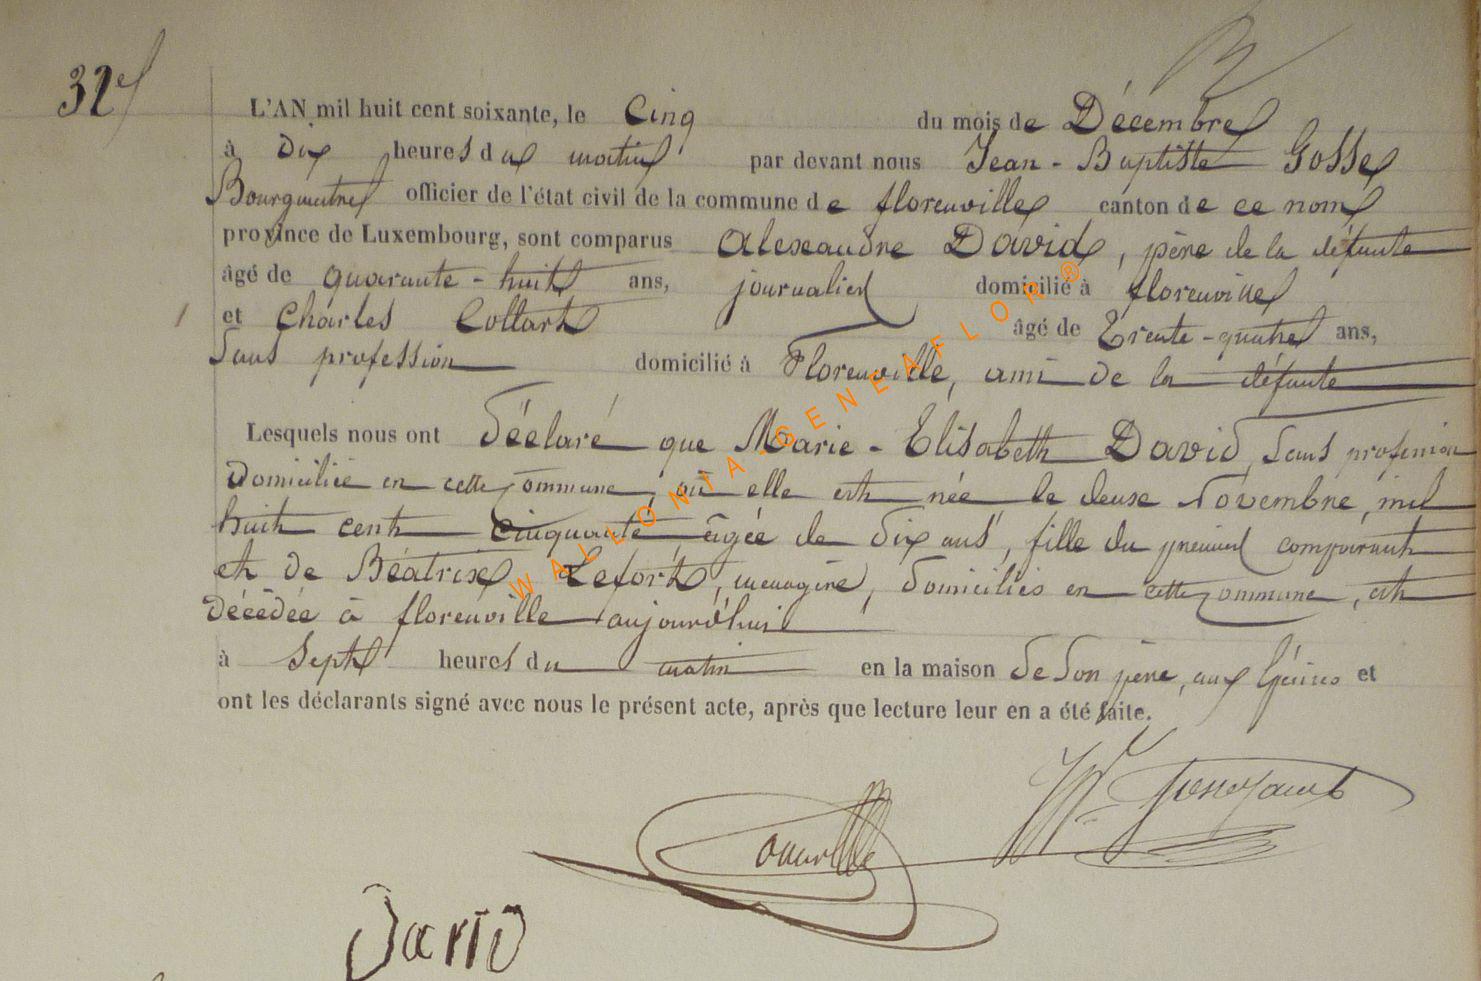 32e
L'AN mil huit cent soixante, le Cinq du mois de Décembre
à Dix heures du matin par devant nous Jean-Baptiste Gosse
Bourgmestre officier de l'état civil de la commune de florenville canton de ce nom
province de Luxembourg, sont comparus Alexandre David, père de la défunte
âgé de quarante-huit ans, journalier domicilié à florenville
et Charles Collart âgé de trente-quatre ans,
Sans profession domicilié à Florenville, ami de la défunte
Lesquels nous ont déclaré que Marie-Elisabeth David, Sans profession
Domiciliée en cette commune, où elle est née le deux Novembre, mil
huit cent cinquante âgée de dix ans, fille du premier comparant
et de Béatrix Lefort, menagère, domiciliés en cette commune, est
Décédée à florenville aujourd'hui
à Sept heures du matin en la maison de son père, aux et
ont les déclarants signé avec nous le présent acte, après que lecture leur en a été faite.
David
WALLONIA-GENEAFLOR®